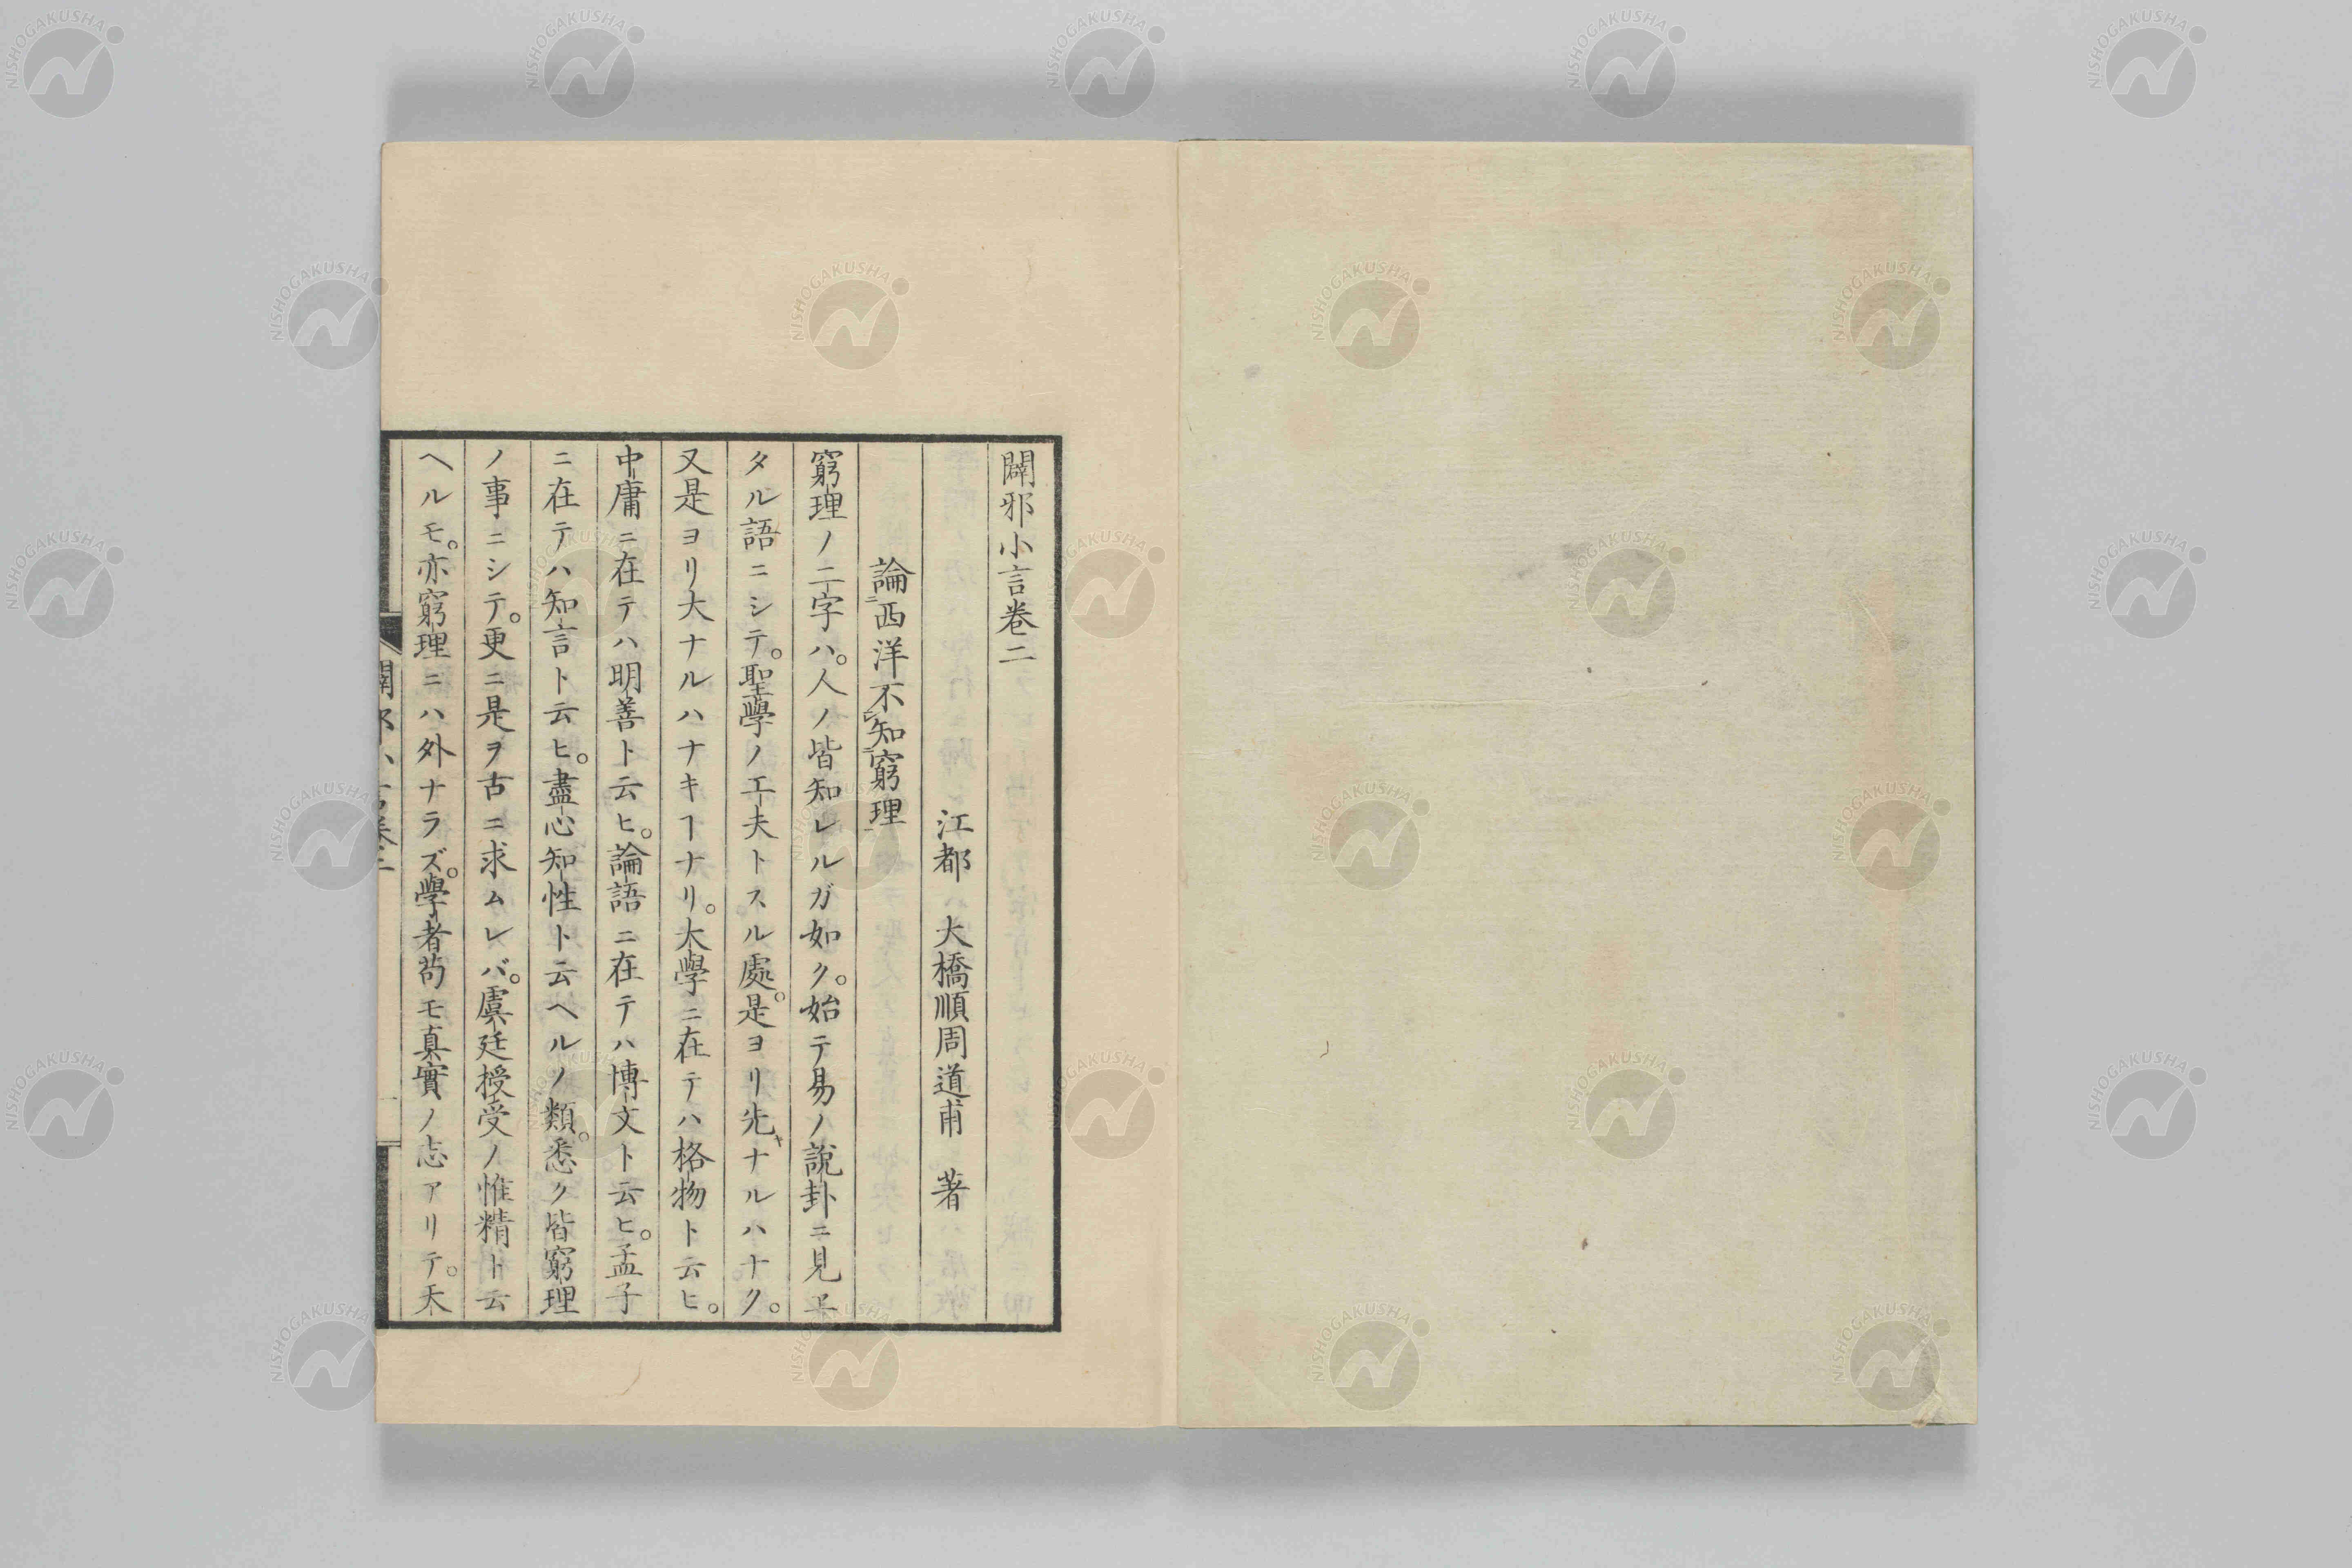 闢邪小言卷二
江都　大橋順周道甫　著
論ニ西洋不レ知ニ窮理一
窮理ノ二字ハ。人ノ皆知レルガ如ク。始テ易ノ說卦ニ見エ
タル語ニシテ。聖學ノ工夫トスル處。是ヨリ先キナルハナク。
又是ヨリ大ナルハナキヿナリ。大學ニ在テハ格物ト云ヒ。
中庸ニ在テハ明善ト云ヒ。論語ニ在テハ博文ト云ヒ。孟子
ニ在テハ知言ト云ヒ。盡心知性ト云ヘルノ類。悉ク皆窮理
ノ事ニシテ。更ニ是ヲ古ニ求ムレバ。虞廷授受ノ惟精ト云
ヘルモ。亦窮理ニハ外ナラズ。學者苟モ真實ノ志アリテ。天
NISHOGAKUSHA